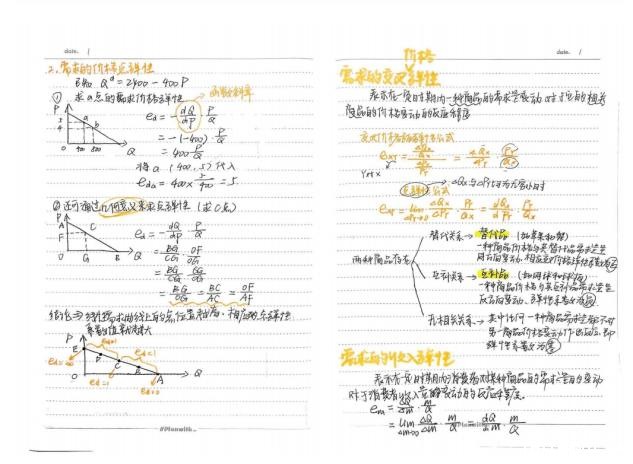 date. /
2. 需求的价格点弹性
已知 Q^d = 2400 - 400P
① 求a点的需求价格弹性
函数斜率
P
5
4
a
b
O 400 800 Q
e_d = - dQ/dP · P/Q
= -(-400) · P/Q
= 400 P/Q
将a (400, 5) 代入
e_da = 400 × 5/400 = 5
② 还可通过几何意义来求点弹性 (求C点)
P
A
F
C
O G B Q
e_d = - dQ/dP · P/Q
= BG/CG · OF/OG
= BG/CG · CG/OG
= BG/OG = BC/AC = OF/AF
结论 ⇒ 线性需求曲线上的点位置越高，相应的点弹性
系数值就越大
P
E
e_d=∞
e_d>1
D
C
e_d=1
e_d<1
B
A
e_d=0
O Q
#Planwith_
date. /
价格
需求的交叉弹性
表示在一定时期内一种商品的需求量变动对于它的相关
商品的价格变动的反应程度
交叉价格弹性公式
e_XY = (ΔQx/Qx)/(ΔPY/PY) = ΔQx/ΔPY · PY/Qx
点弹性公式
ΔQx与ΔPY均为无穷小时
e_XY = lim ΔPY→0 ΔQx/ΔPY · PY/Qx = dQx/dPY · PY/Qx
两种商品存在
替代关系 → 替代品 (如苹果和梨)
一种商品价格与其替代品需求量呈
同方向变动，相应交叉价格弹性系数为正
互补关系 → 互补品
一种商品价格与其互补品需求量呈
反方向变动，弹性系数为负
无相关关系 → 其中任何一种商品需求量都不对
另一商品价格变动作出反应，即
弹性系数为零
需求的收入弹性
表示在一定时期内消费者对某种商品的需求量的变动
对于消费者收入量变动的反应程度
e_m = ΔQ/Δm · m/Q
= lim Δm→0 ΔQ/Δm · m/Q = dQ/dm · m/Q
#Planwith_